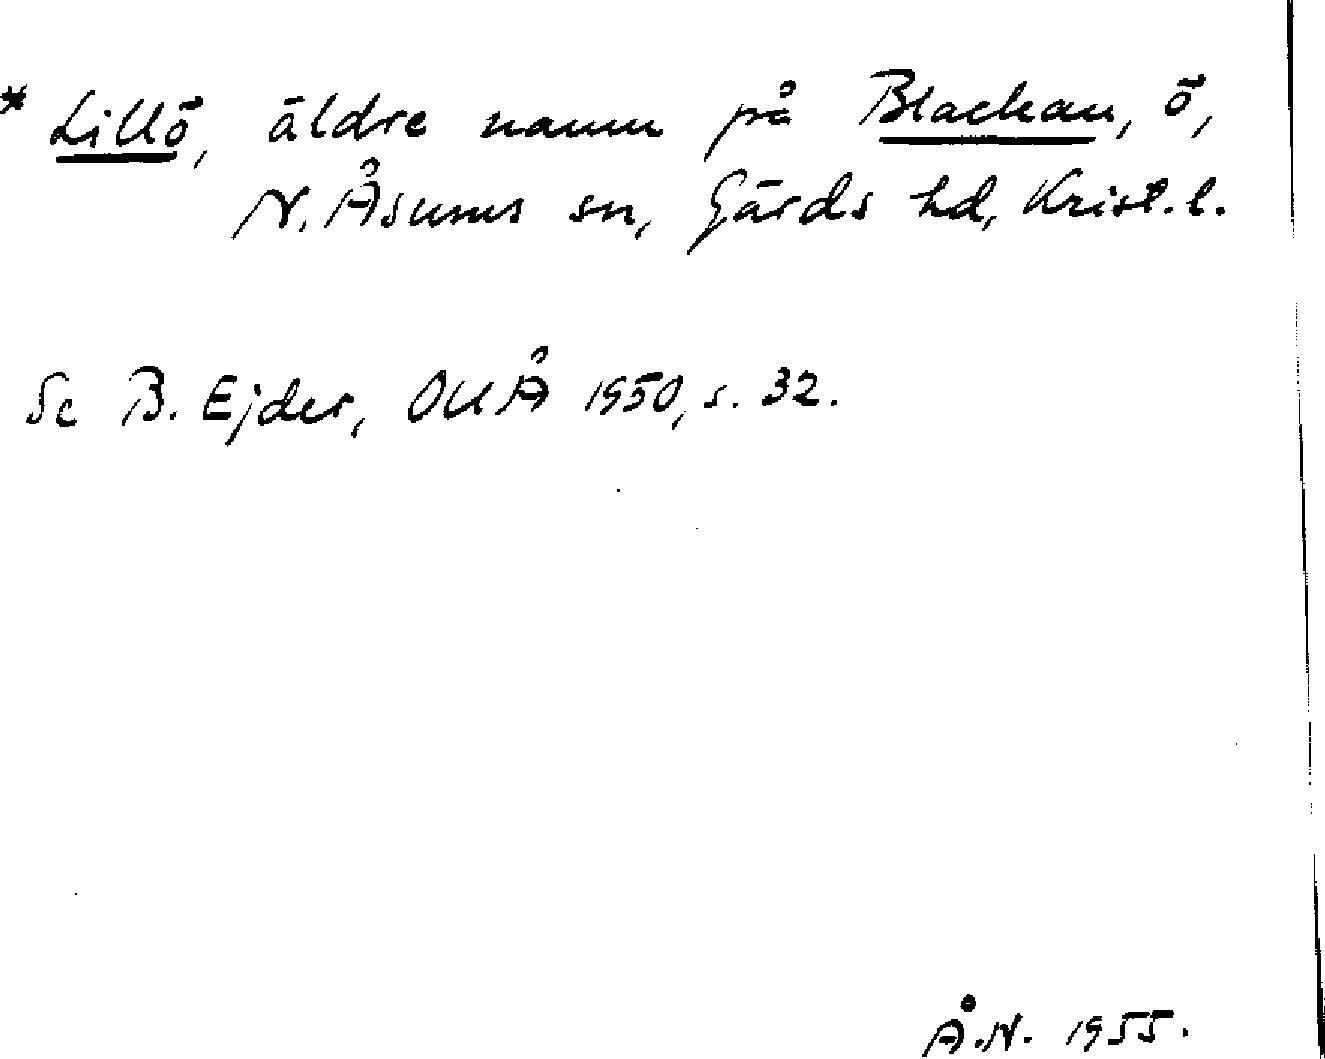 * Lillö, äldre namn på Blackan, ö,
N. Åsums sn, Gärds hd, Krist. l.
Se B. Ejder, OUÅ 1950, s. 32.
Å.N. 1955.